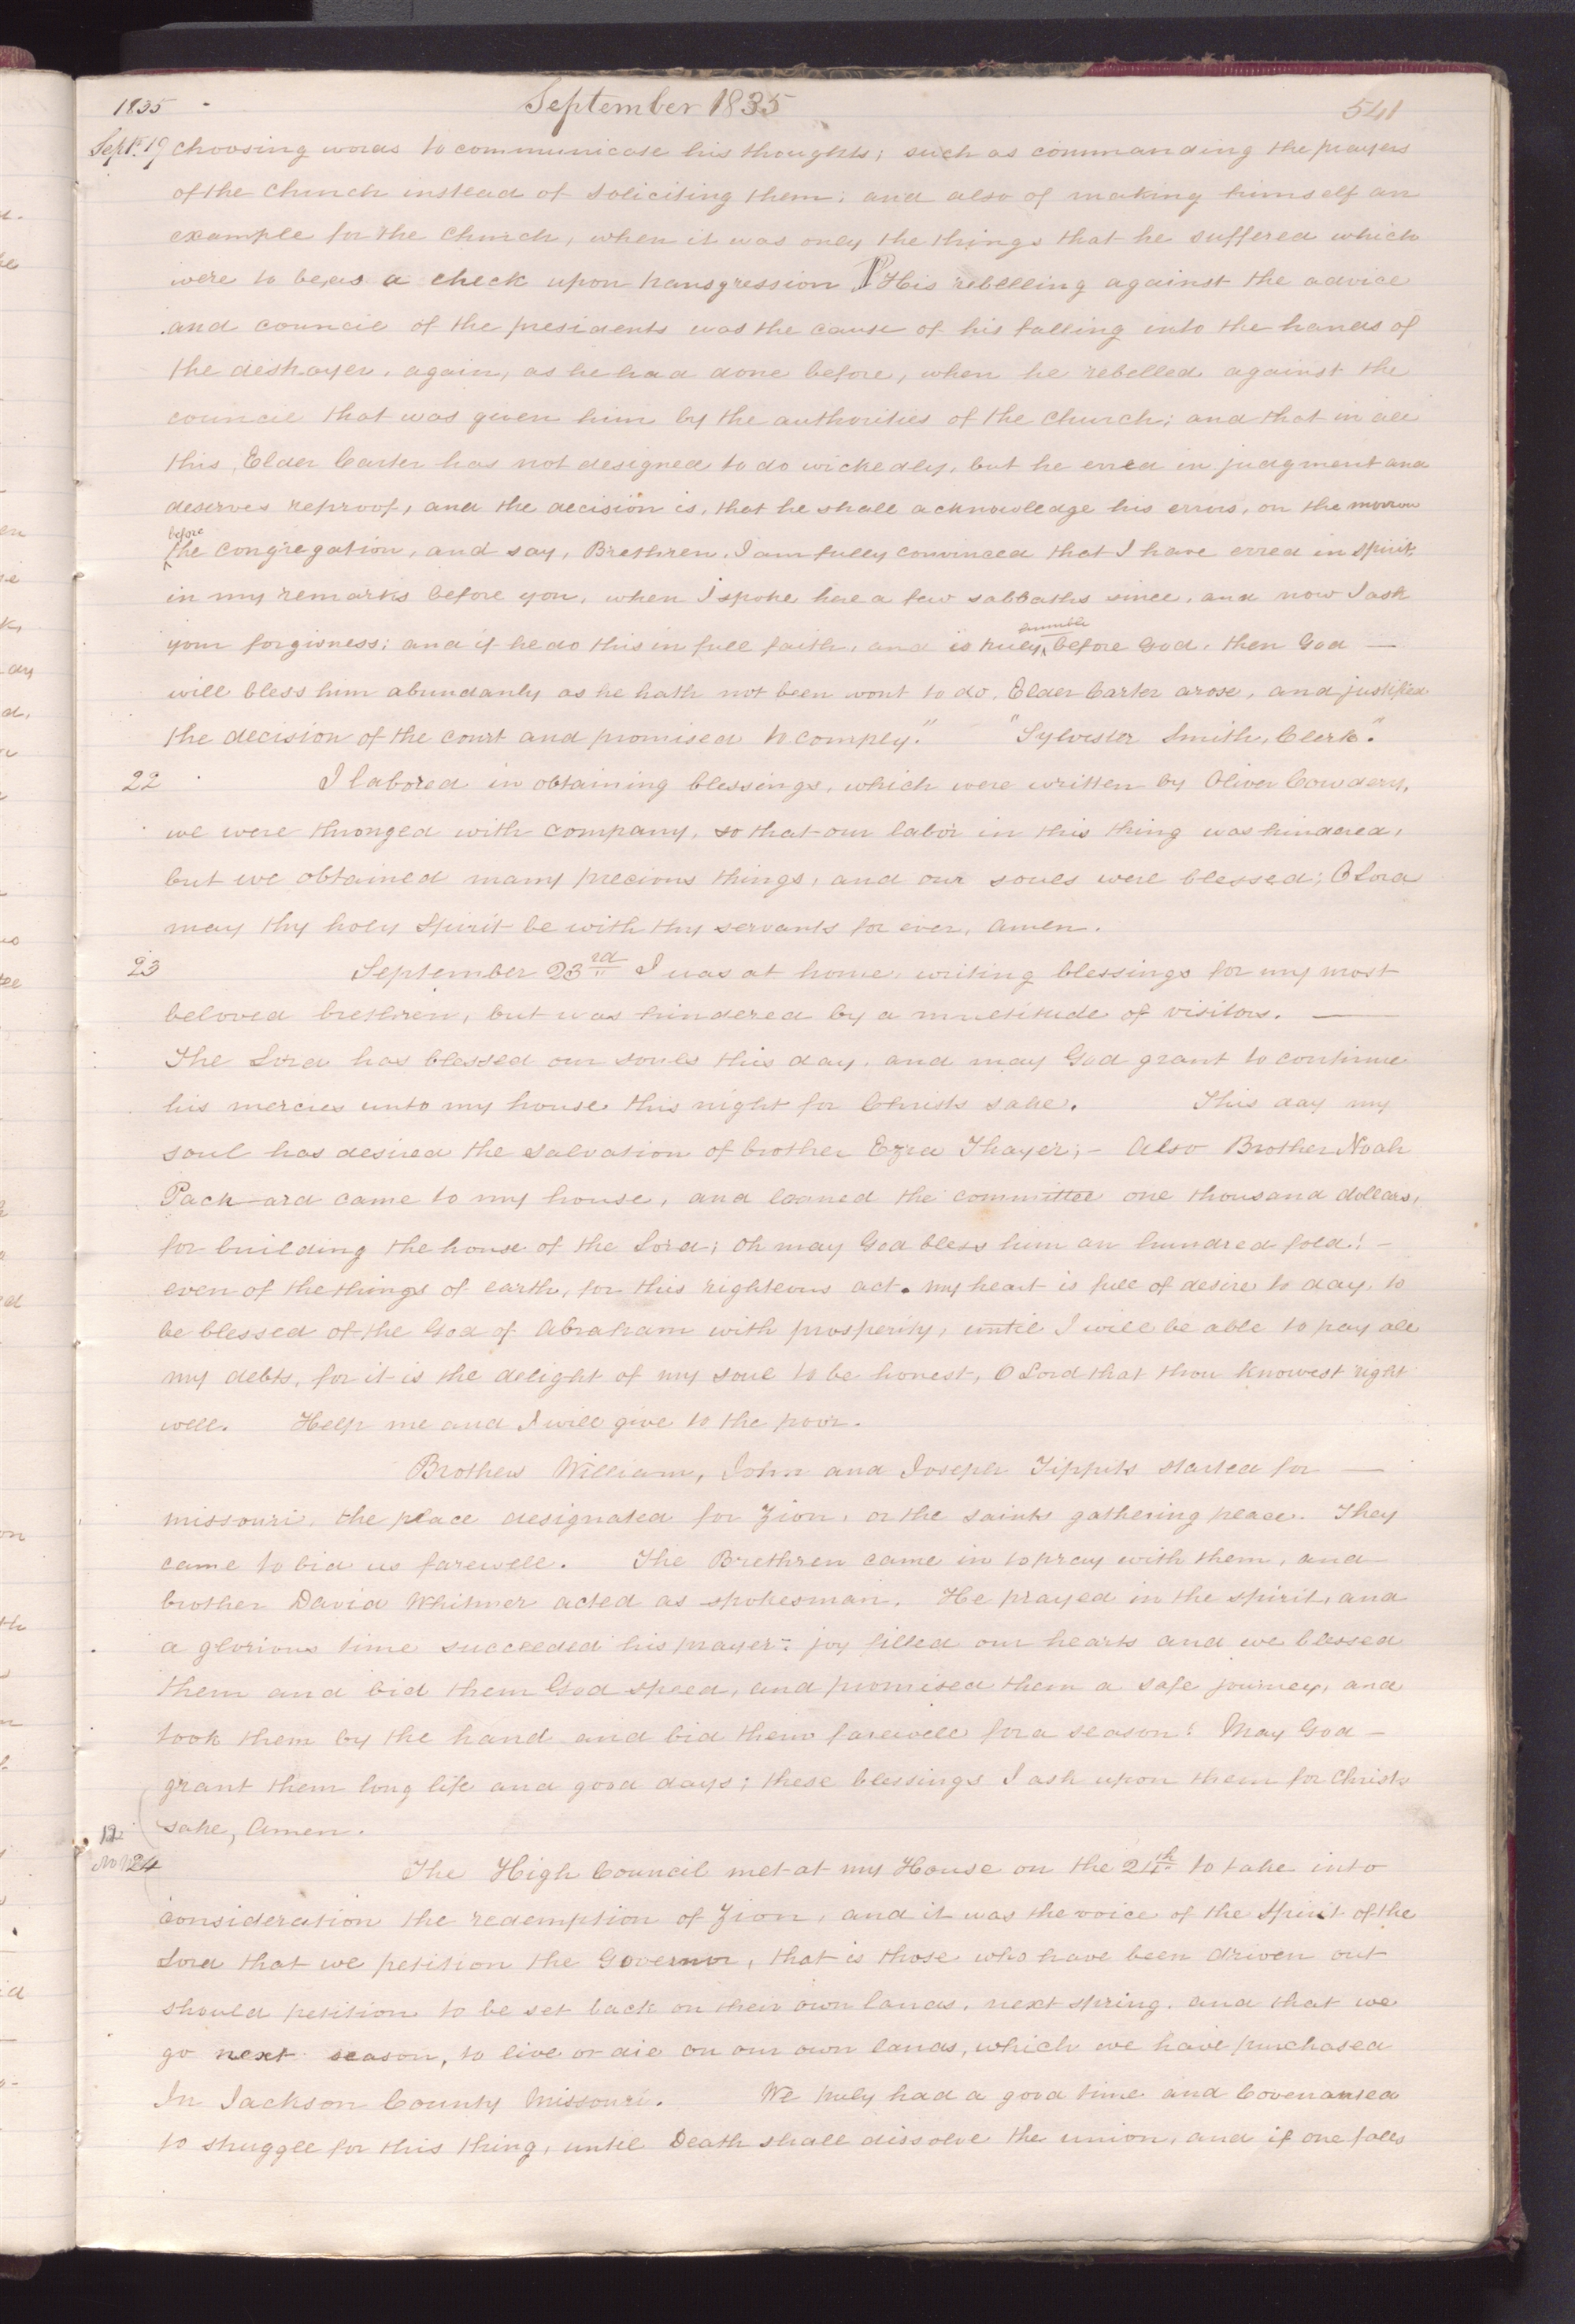 1835 September 1835 541
Sept. 19 choosing words to communicate his thoughts; such as commanding the prayers
of the Church instead of soliciting them; and also of making himself an
example for the Church, when it was only the things that he suffered which
were to be, as a check upon transgression ¶ His rebelling against the advice
and council of the presidents was the cause of his falling into the hands of
the destroyer, again, as he had done before, when he rebelled against the
council that was given him by the authorities of the Church; and that in all
this, Elder Carter has not designed to do wickedly, but he erred in judgment and
deserves reproof, and the decision is, that he shall acknowledge his errors, on the morrow
before
the congregation, and say, Brethren, I am fully convinced that I have erred in spirit
in my remarks before you, when I spoke here a few sabbaths since, and now I ask
humble
your forgivness; and if he do this in full faith, and is truly before God, then God —
will bless him abundanly as he hath not been wont to do. Elder Carter arose, and justified
the decision of the court and promised to comply." "Sylvester Smith, Clerk".
22 I labored in obtaining blessings, which were written by Oliver Cowdery,
we were thronged with company, so that our labor in this thing was hindered,
but we obtained many precious things, and our souls were blessed; O Lord
may thy holy Spirit be with thy servants for ever, Amen.
23 September 23rd I was at home, writing blessings for my most
beloved brethren, but was hindered by a multitude of visitors. —
The Lord has blessed our souls this day, and may God grant to continue
his mercies unto my house this night for Christs sake. This day my
soul has desired the salvation of brother Ezra Thayer; – Also Brother Noah
Pack-ard came to my house, and loaned the committee one thousand dollars,
for building the house of the Lord; Oh may God bless him an hundred fold! –
even of the things of earth, for this righteous act. My heart is full of desire to day, to
be blessed of the God of Abraham with prosperity, until I will be able to pay all
my debts, for it is the delight of my soul to be honest, O Lord that thou knowest right
well. Help me and I will give to the poor.
Brothers William, John and Joseph Tippits started for —
missouri, the place designated for Zion, or the saints gathering place. They
came to bid us farewell. The Brethren came in to pray with them, and
brother David Whitmer acted as spokesman. He prayed in the spirit, and
a glorious time succeeded his prayer: joy filled our hearts and we blessed
them and bid them God speed, and promised them a safe journey, and
took them by the hand and bid them farewell for a season! May God –
grant them long life and good days; these blessings I ask upon them for Christs
sake, Amen.
12
24 The High Council met at my House on the 24th to take into
consideration the redemption of Zion, and it was the voice of the Spirit of the
Lord that we petition the Governor, that is those who have been driven out
should petition to be set back on their own lands, next spring, and that we
go next season, to live or die on our own lands, which we have purchased
In Jackson County Missouri. We truly had a good time and Covenanted
to struggle for this thing, until Death shall dissolve the union, and if one falls